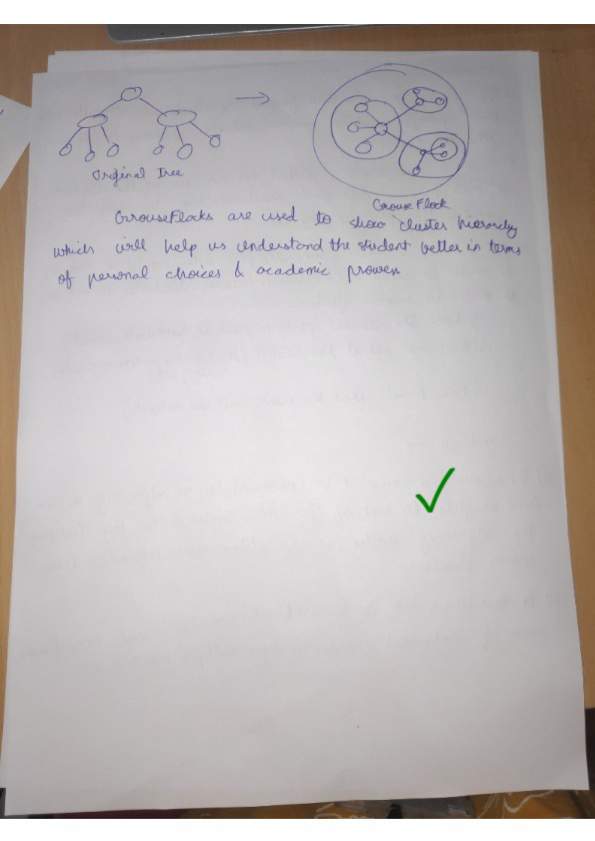 Orginal Tree
GrouseFlock
GrouseFlocks are used to show cluster hierarchy
which will help us understand the student better in terms
of personal choices & academic prowess